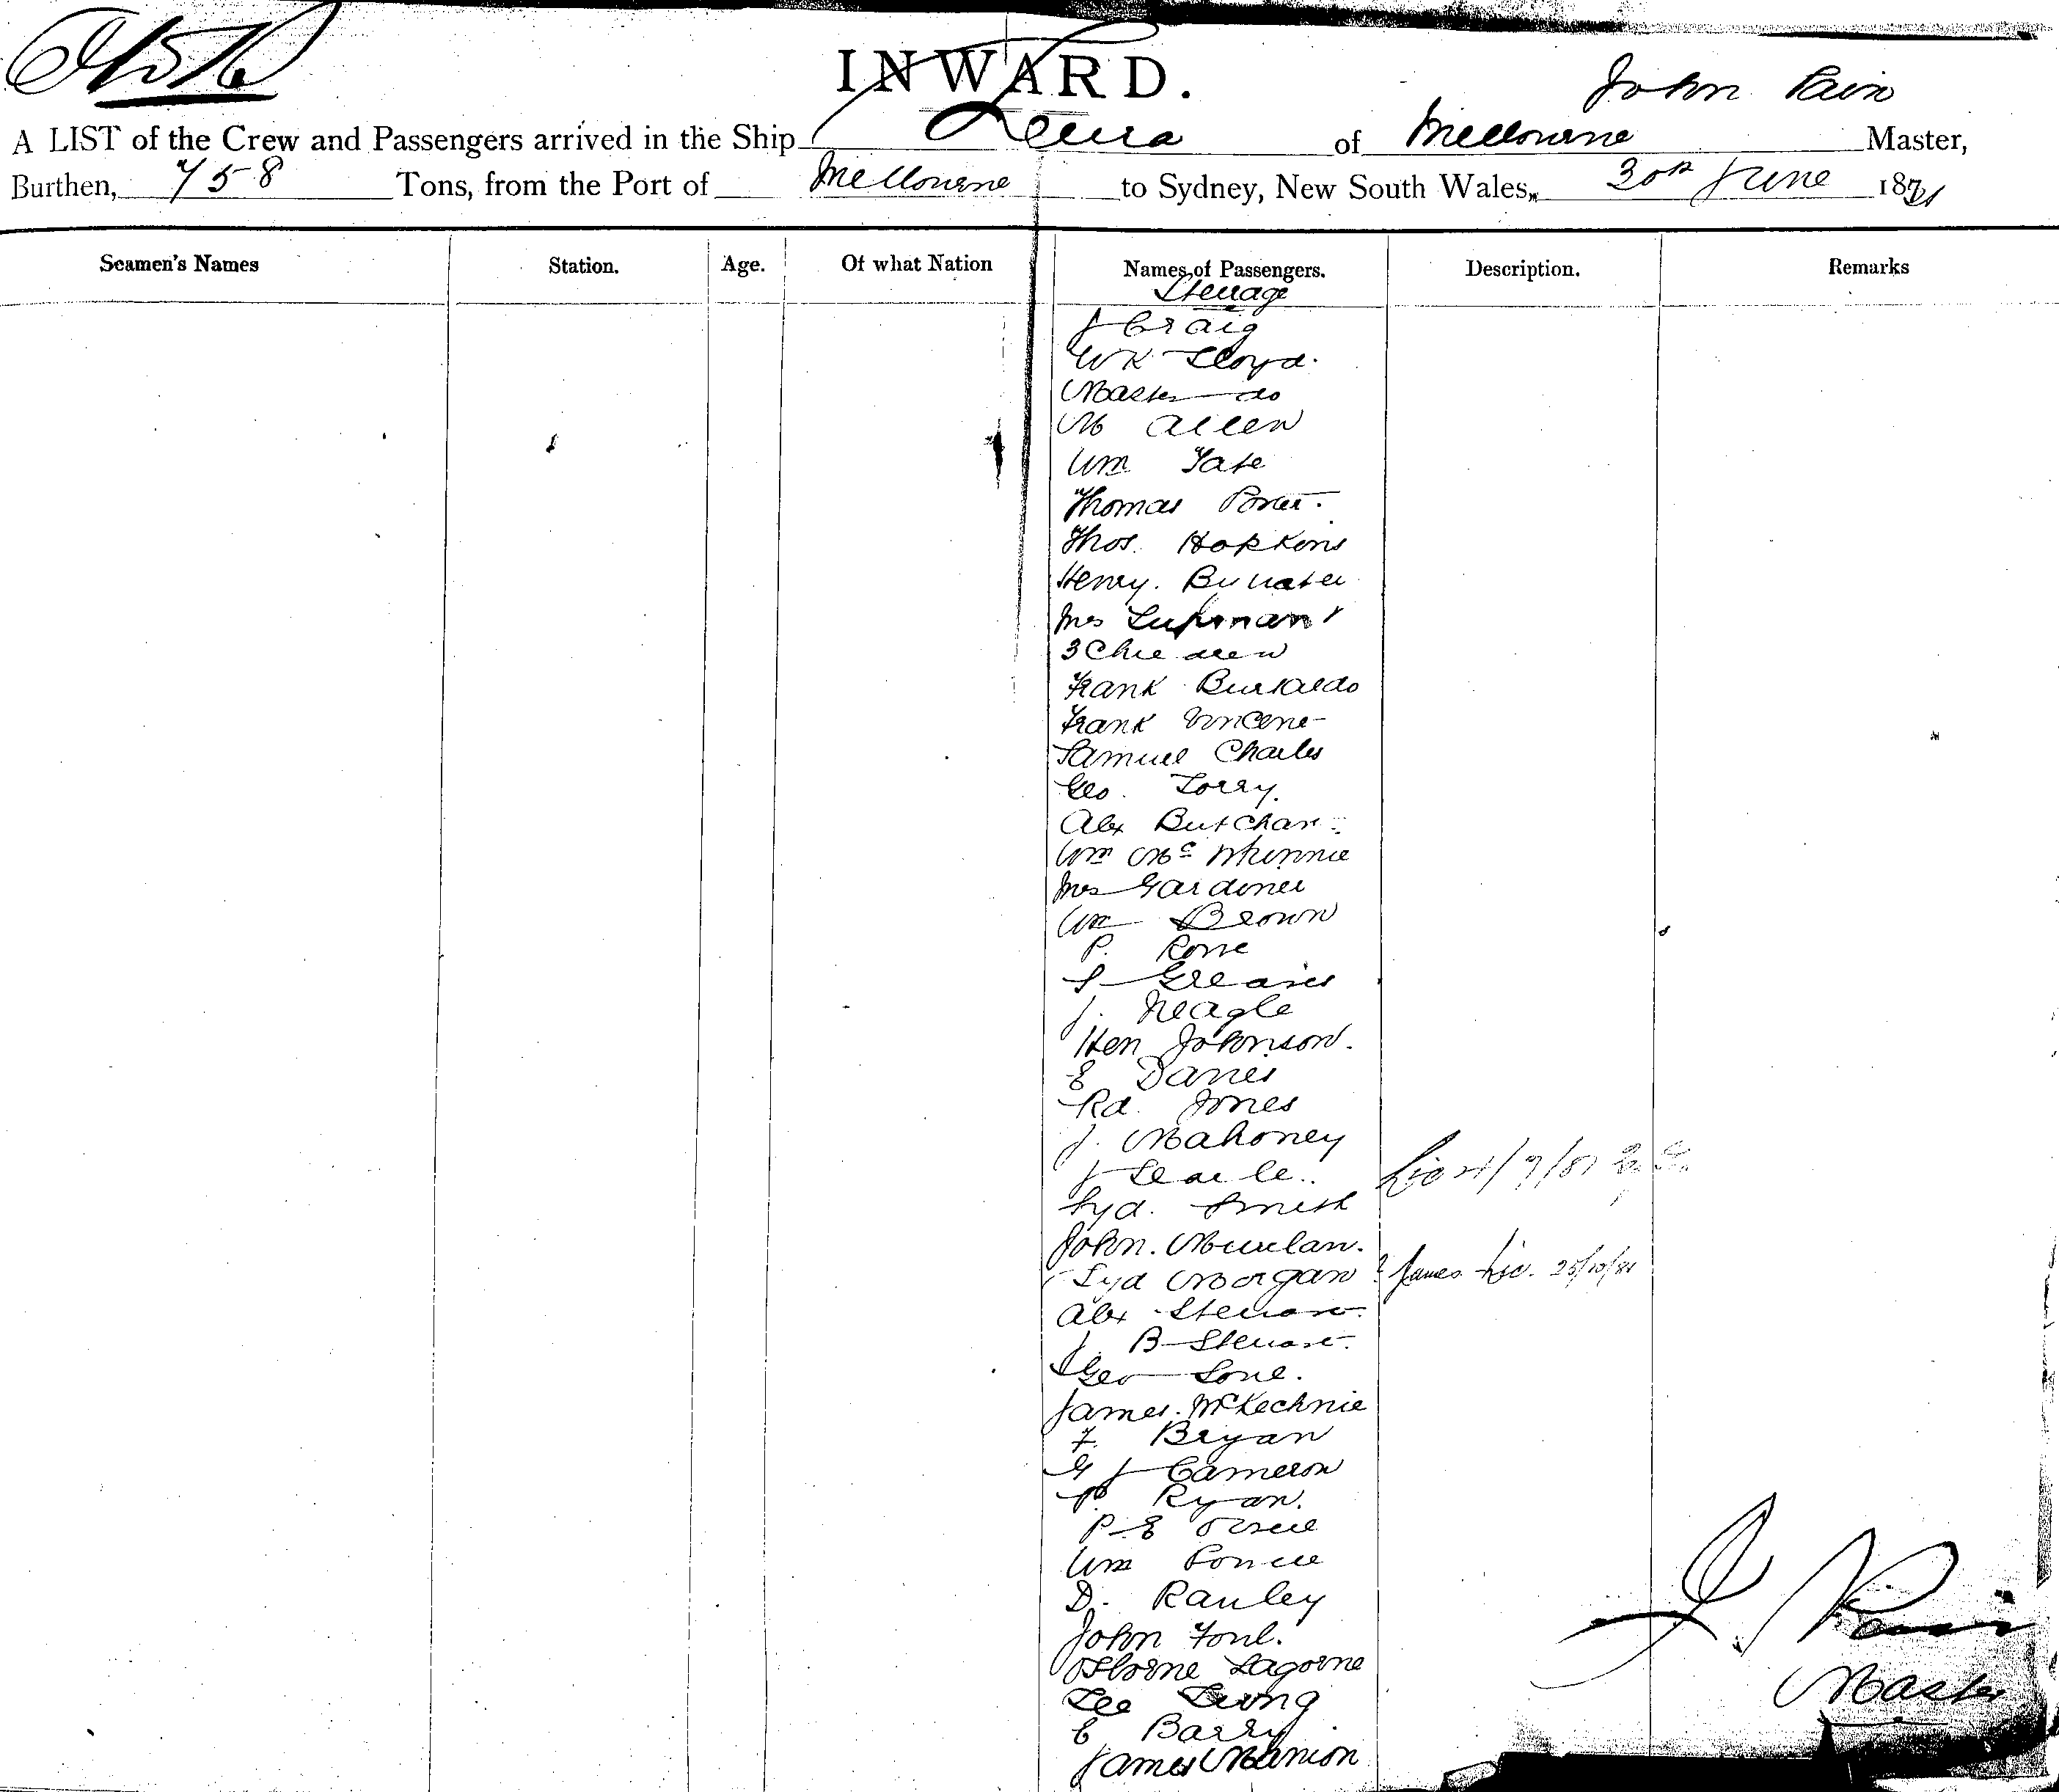 INWARD.
John Pain
A LIST of the Crew and Passengers arrived in the Ship Leura of Melbourne Master,
Burthen, 758 Tons, from the Port of Melbourne to Sydney, New South Wales, 30th June 1881
Seamen's Names Station. Age. Of what Nation Names of Passengers. Description. Remarks
Steerage
J Craig
Lloyd.
Master do
M Allen
Wm Tate
Thomas Porter.
Thos. Hopkins
Henry.
Mrs
3 Children
Frank
Frank Vincent
Samuel Charles
Geo. Torry.
Alex Butchart
Wm Mc Whinnie
Mrs Gardiner
Wm Brown
P. Rowe
S Greaves
J. Neagle
Hen Johnson.
E Davies
Rd. Jones
J. Mahoney
J Searle.
Syd. Smith
John.
Syd Morgan ? James Lic. 25/10/81
Alex Stewart
J. B Stewart.
Geo
James. McKechnie
F. Bryan
G J Cameron
P Ryan.
P E
Wm
D.
John
Osborne
Lee
E Barry
James Mannion
J. Pain
Master